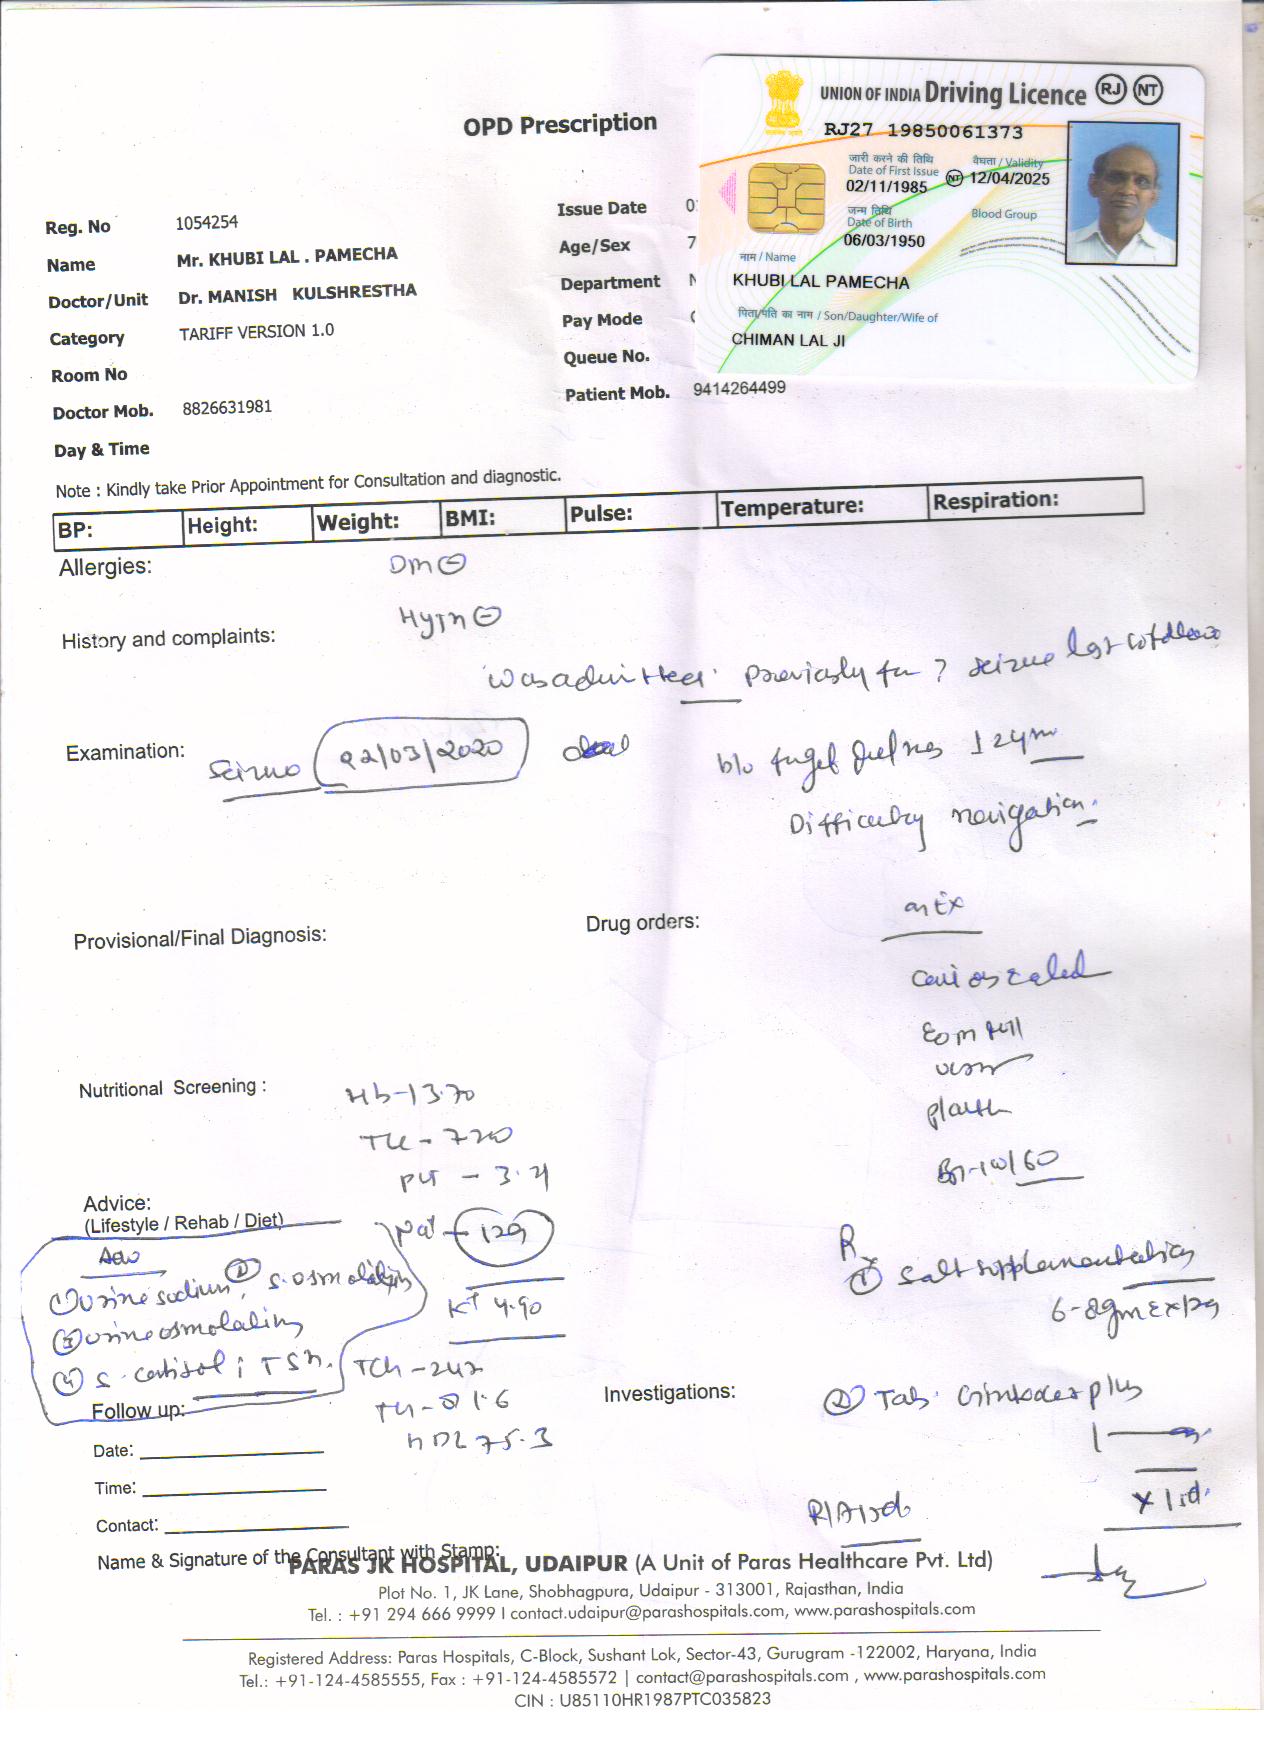 OPD Prescription
UNION OF INDIA Driving Licence RJ NT
RJ27 19850061373
जारी करने की तिथि
Date of First Issue
02/11/1985
वैधता / Validity
NT 12/04/2025
जन्म तिथि
Date of Birth
06/03/1950
Blood Group
नाम / Name
KHUBI LAL PAMECHA
पिता/पति का नाम / Son/Daughter/Wife of
CHIMAN LAL JI
Reg. No 1054254
Name Mr. KHUBI LAL . PAMECHA
Doctor/Unit Dr. MANISH KULSHRESTHA
Category TARIFF VERSION 1.0
Room No
Doctor Mob. 8826631981
Day & Time
Issue Date 0
Age/Sex 7
Department
Pay Mode
Queue No.
Patient Mob. 9414264499
Note : Kindly take Prior Appointment for Consultation and diagnostic.
BP: Height: Weight: BMI: Pulse: Temperature: Respiration:
Allergies:
DM
HTN
History and complaints:
Was admitted Previously for ? seizure last
Examination:
Seizure 22/03/2020
Difficulty navigation
Provisional/Final Diagnosis:
Drug orders:
EOM full
Nutritional Screening :
Hb-13.70
PLT - 3.21
Advice:
(Lifestyle / Rehab / Diet)
Na+ - 129
Adv
① Urine sodium, ② S. osmolality
③ Urine osmolality
④ S. cortisol; TSH.
K+ 4.90
HDL 75.3
Rx
① Salt supplementation
Follow up:
Investigations:
② Tab. plus
Date:
Time:
Contact:
Name & Signature of the Consultant with Stamp:
PARAS JK HOSPITAL, UDAIPUR (A Unit of Paras Healthcare Pvt. Ltd)
Plot No. 1, JK Lane, Shobhagpura, Udaipur - 313001, Rajasthan, India
Tel. : +91 294 666 9999 I contact.udaipur@parashospitals.com, www.parashospitals.com
Registered Address: Paras Hospitals, C-Block, Sushant Lok, Sector-43, Gurugram -122002, Haryana, India
Tel.: +91-124-4585555, Fax : +91-124-4585572 | contact@parashospitals.com , www.parashospitals.com
CIN : U85110HR1987PTC035823